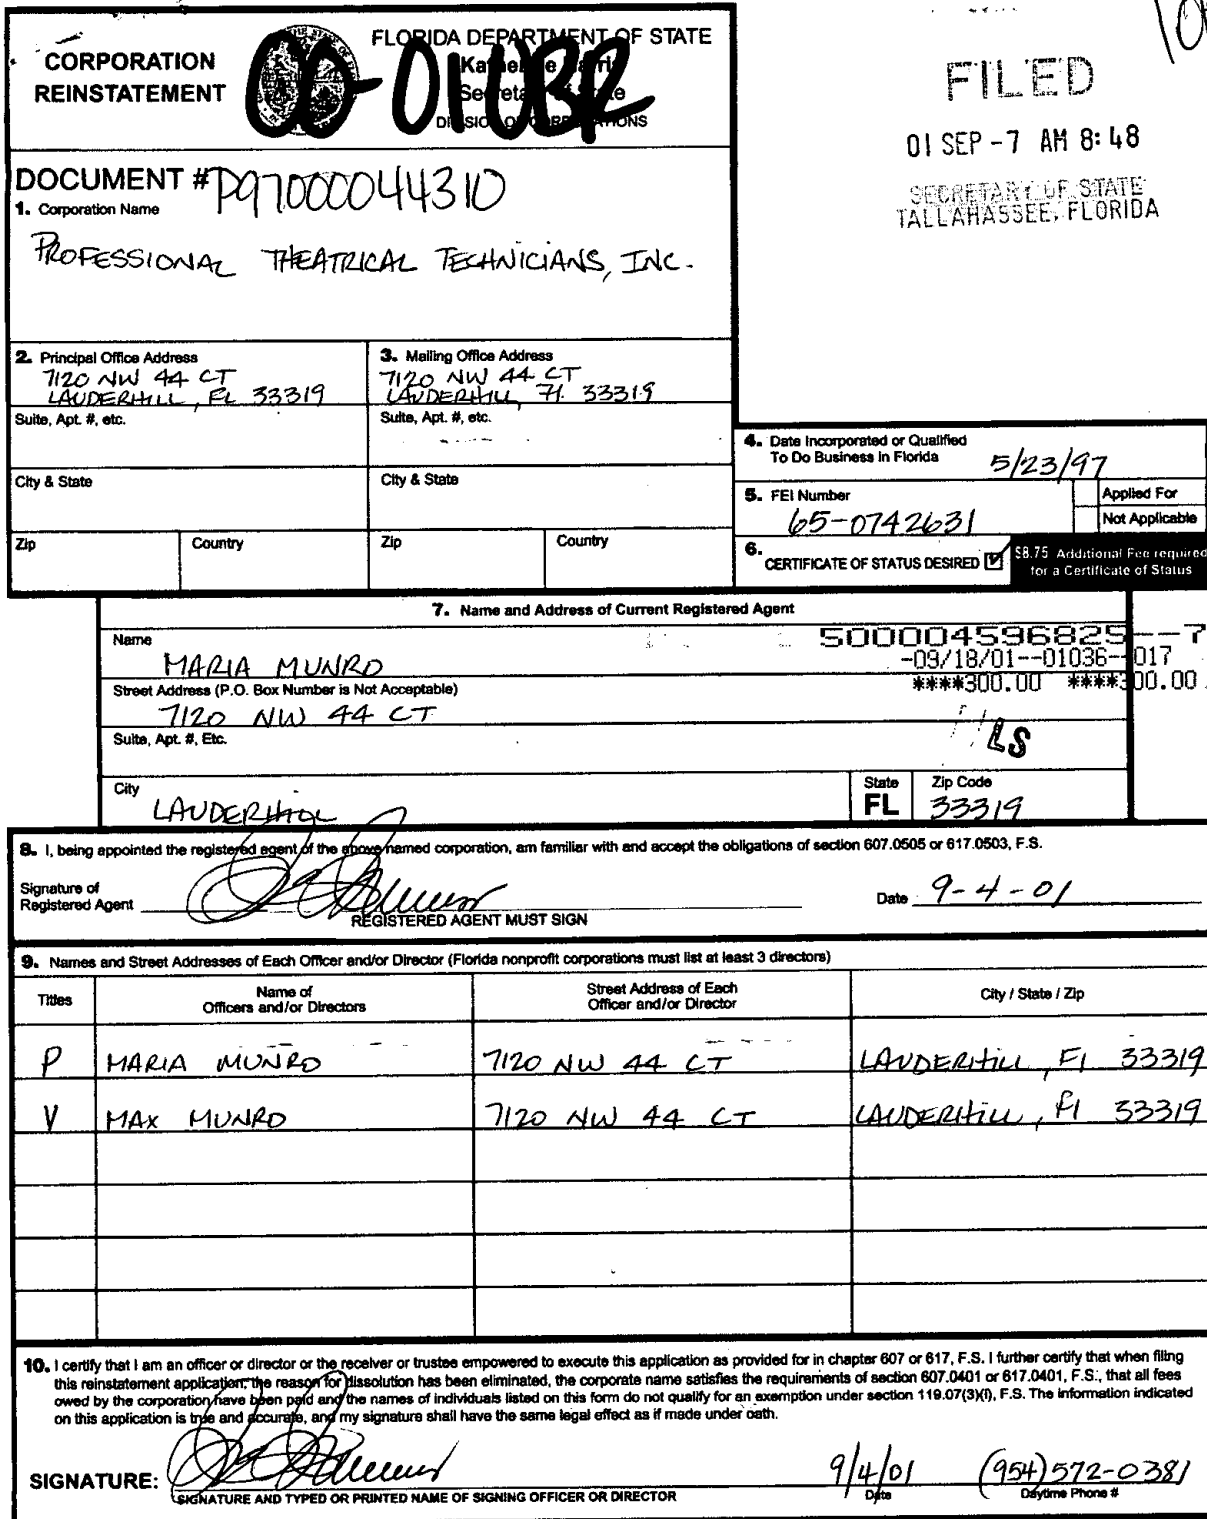 CORPORATION
REINSTATEMENT
FLORIDA DEPARTMENT OF STATE
Katherine Harris
Secretary of State
DIVISION OF CORPORATIONS
00-01UBR
FILED
01 SEP -7 AM 8:48
SECRETARY OF STATE
TALLAHASSEE, FLORIDA
DOCUMENT # P97000044310
1. Corporation Name
PROFESSIONAL THEATRICAL TECHNICIANS, INC.
2. Principal Office Address
7120 NW 44 CT
LAUDERHILL, FL 33319
3. Mailing Office Address
7120 NW 44 CT
LAUDERHILL, Fl. 33319
Suite, Apt. #, etc.
Suite, Apt. #, etc.
City & State
City & State
Zip
Country
Zip
Country
4. Date Incorporated or Qualified
To Do Business in Florida 5/23/97
5. FEI Number
65-0742631
Applied For
Not Applicable
6. CERTIFICATE OF STATUS DESIRED
$8.75 Additional Fee required
for a Certificate of Status
7. Name and Address of Current Registered Agent
Name
MARIA MUNRO
500004596825--7
-09/18/01--01036--017
****300.00 ****300.00
Street Address (P.O. Box Number is Not Acceptable)
7120 NW 44 CT
Suite, Apt. #, Etc.
LS
City
LAUDERHILL
State
FL
Zip Code
33319
8. I, being appointed the registered agent of the above named corporation, am familiar with and accept the obligations of section 607.0505 or 617.0503, F.S.
Signature of
Registered Agent
REGISTERED AGENT MUST SIGN
Date 9-4-01
9. Names and Street Addresses of Each Officer and/or Director (Florida nonprofit corporations must list at least 3 directors)
Titles
Name of
Officers and/or Directors
Street Address of Each
Officer and/or Director
City / State / Zip
P MARIA MUNRO 7120 NW 44 CT LAUDERHILL, Fl 33319
V MAX MUNRO 7120 NW 44 CT LAUDERHILL, Fl 33319
10. I certify that I am an officer or director or the receiver or trustee empowered to execute this application as provided for in chapter 607 or 617, F.S. I further certify that when filing
this reinstatement application, the reason for dissolution has been eliminated, the corporate name satisfies the requirements of section 607.0401 or 617.0401, F.S., that all fees
owed by the corporation have been paid and the names of individuals listed on this form do not qualify for an exemption under section 119.07(3)(i), F.S. The information indicated
on this application is true and accurate, and my signature shall have the same legal effect as if made under oath.
SIGNATURE:
SIGNATURE AND TYPED OR PRINTED NAME OF SIGNING OFFICER OR DIRECTOR
9/4/01
Date
(954)572-0381
Daytime Phone #